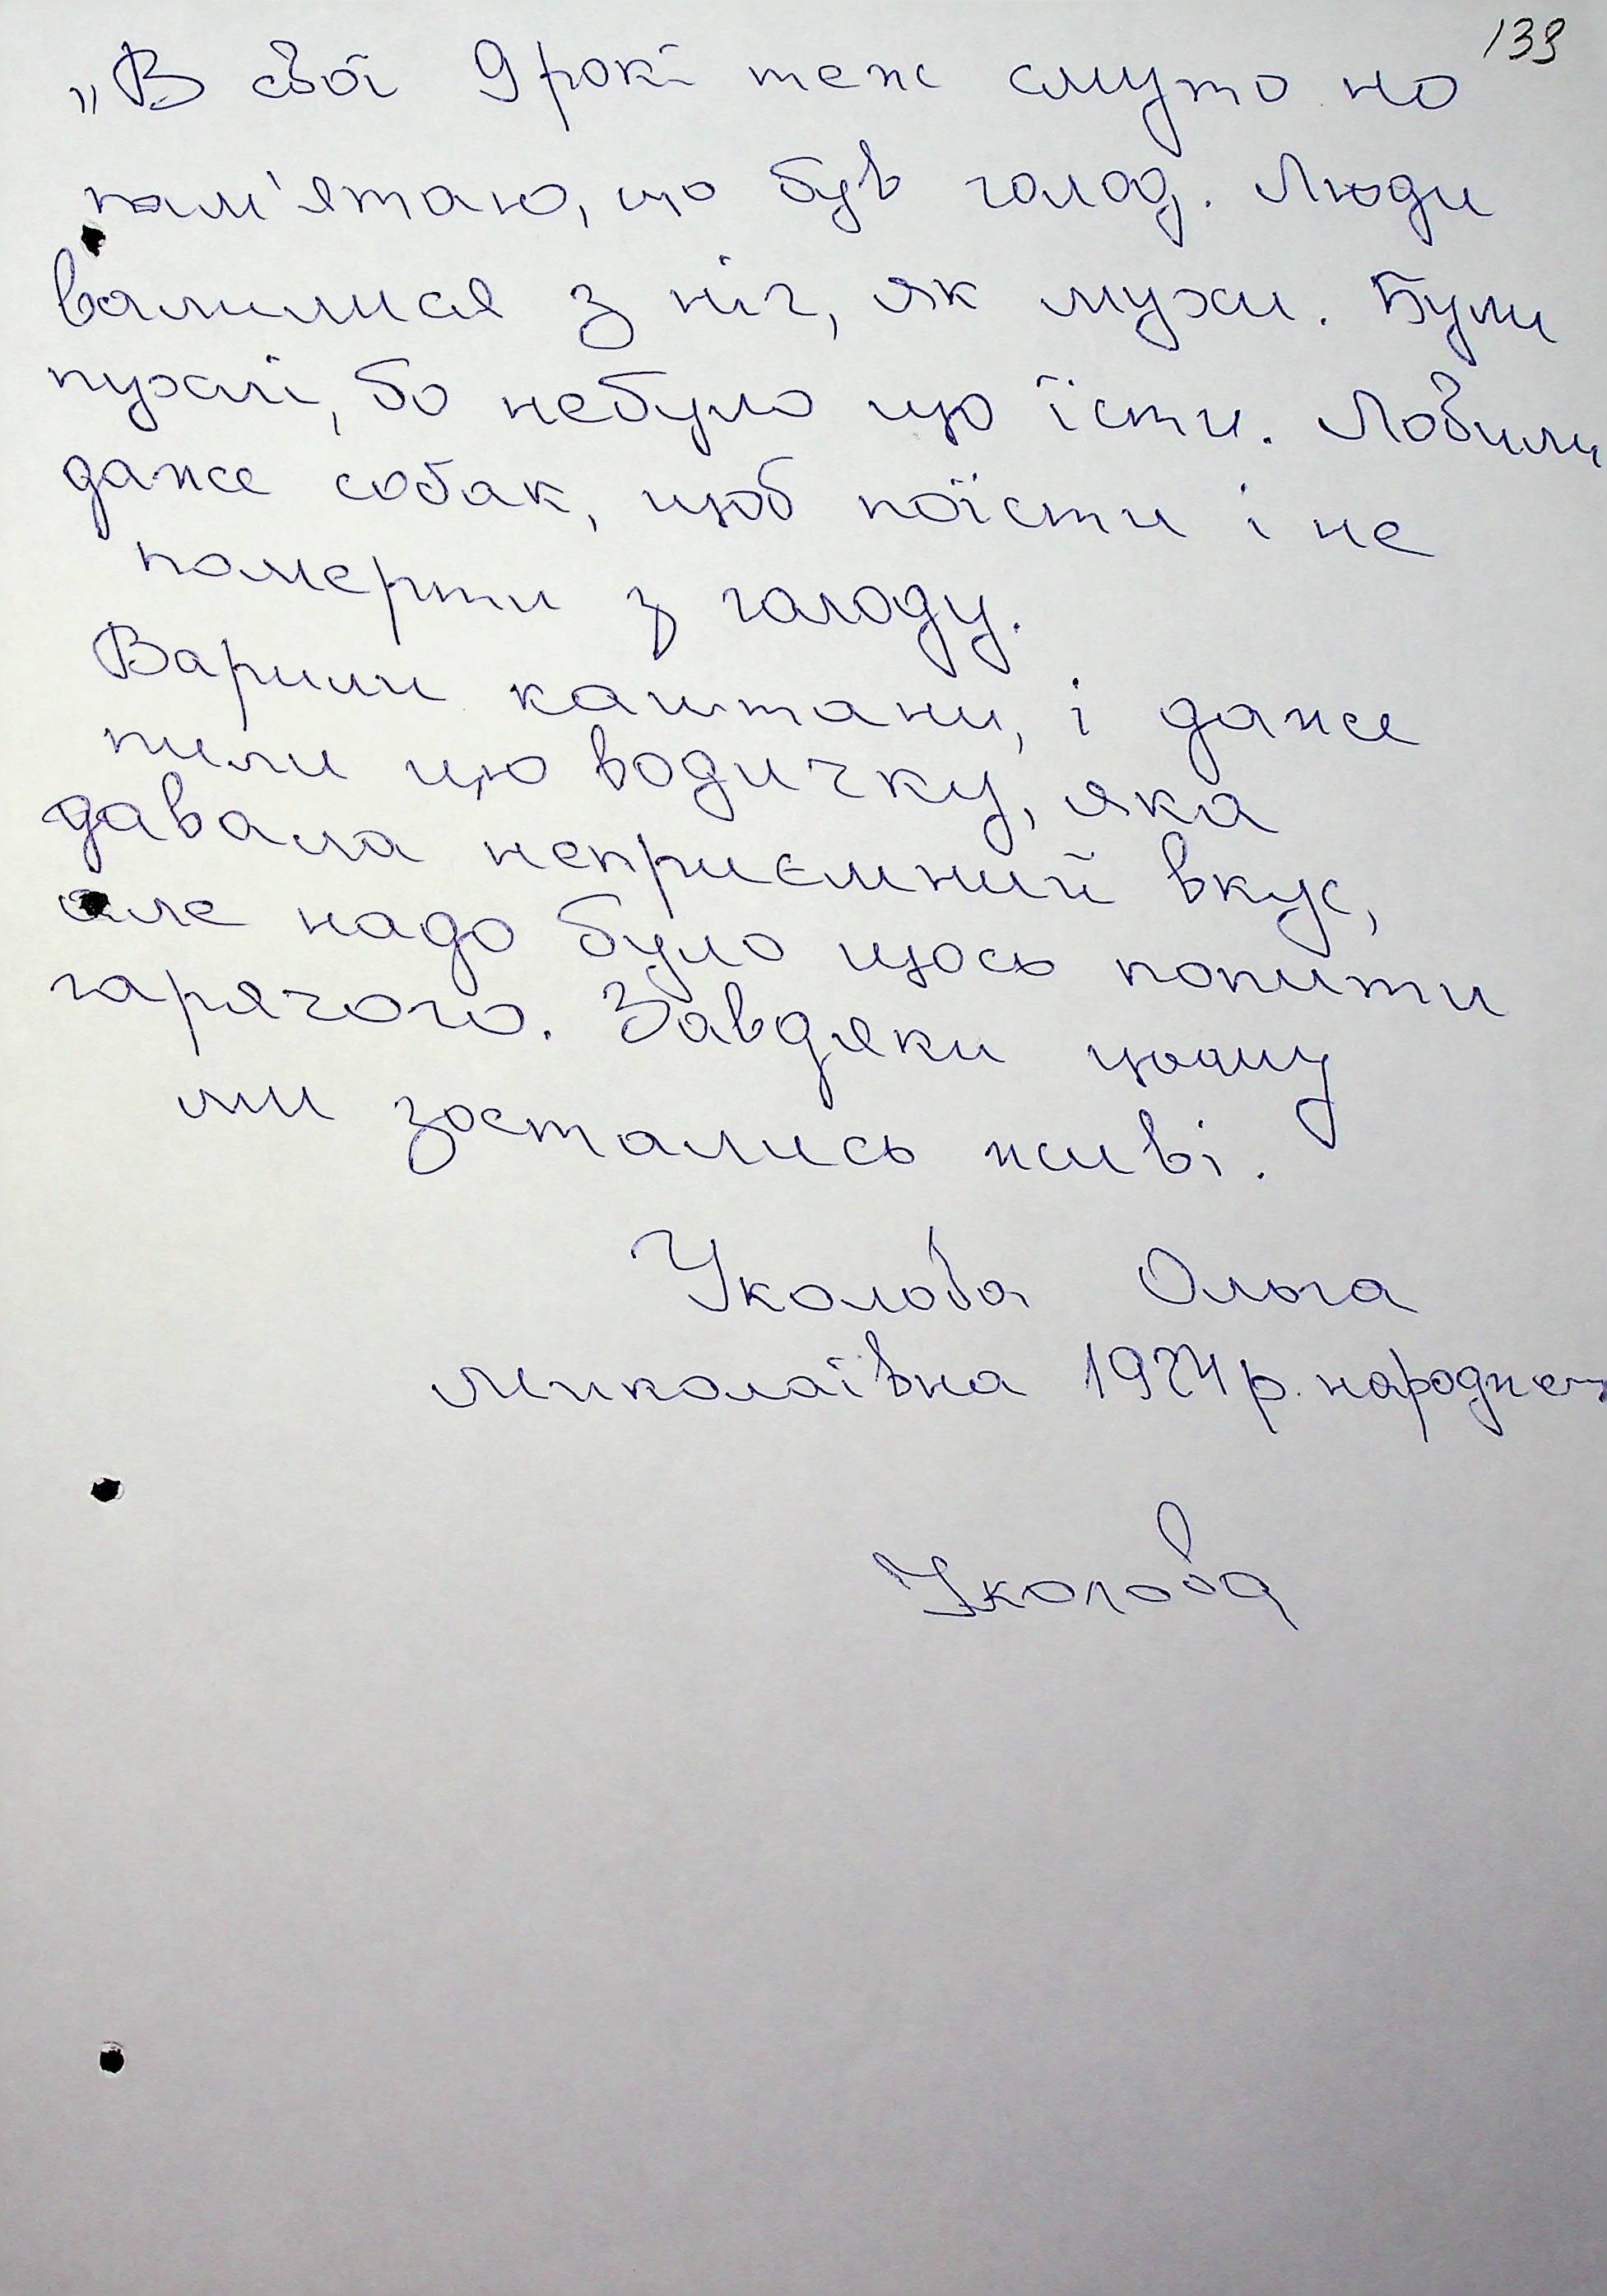 139
„В свої 9 рокі теж смуто но
пам'ятаю, що був голод. Люди
валилися з ніг, як мухи. Були
пухлі, бо небуло що їсти. Ловили
даже собак, щоб поїсти і не
померти з голоду.
Варили каштани, і даже
пили цю водичку, яка
давала неприємний вкус,
але надо було щось попити
гарячого. Завдяки цьому
ми зостались живі.
Уколова Ольга
Миколаївна 1924 р. народжен
Уколова